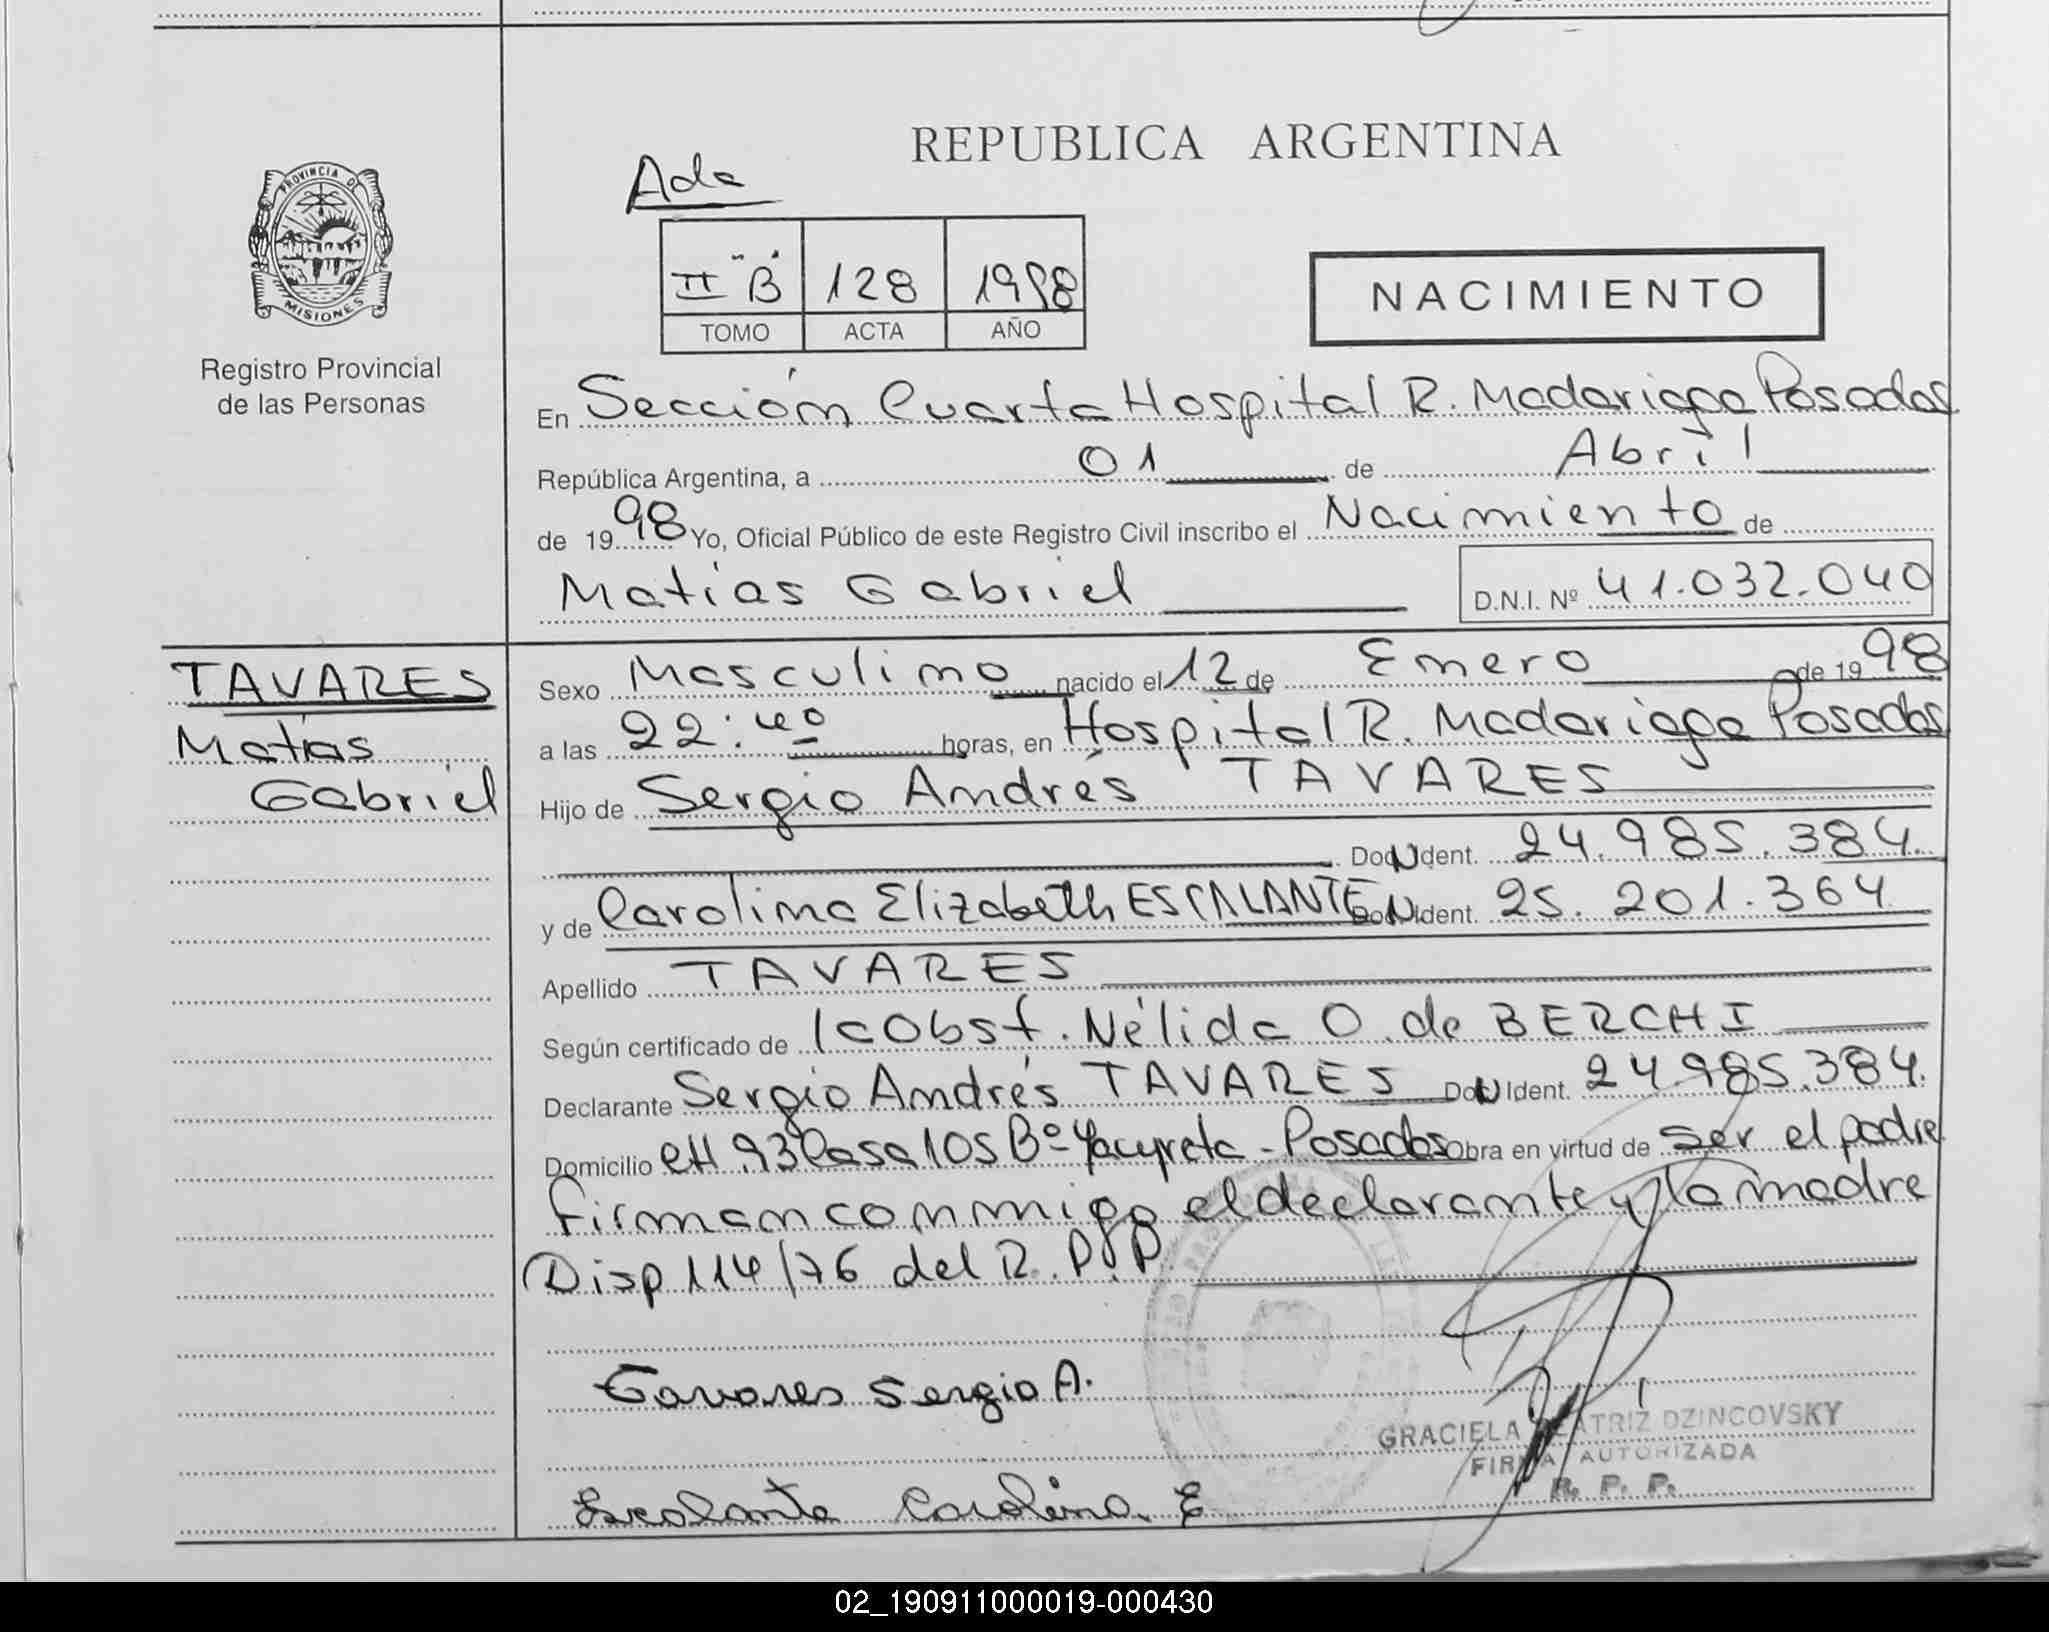 REPUBLICA ARGENTINA
Ada
II "B" 128 1998
TOMO ACTA AÑO
NACIMIENTO
PROVINCIA DE
MISIONES
Registro Provincial
de las Personas
En Sección Cuarta Hospital R. Madariaga Posadas
República Argentina, a 01 de Abril
de 1998 Yo, Oficial Público de este Registro Civil inscribo el Nacimiento de
Matías Gabriel D.N.I. Nº 41.032.040
TAVARES
Matías
Gabriel
Sexo Masculino nacido el 12 de Enero de 1998
a las 22:40 horas, en Hospital R. Madariaga Posadas
Hijo de Sergio Andrés TAVARES
Doc Ident. 24.985.384.
y de Carolina Elizabeth ESCALANTE Doc Ident. 25.201.364
Apellido TAVARES
Según certificado de Obst. Nélida O. de BERCHI
Declarante Sergio Andrés TAVARES Doc Ident. 24.985.384.
Domicilio 93 Casa 105 Bº Yacyreta - Posadas Obra en virtud de ser el padre
firman conmigo el declarante y la madre
Disp 114/76 del R.P.P
Tavares Sergio A.
GRACIELA BEATRIZ DZINCOVSKY
FIRMA AUTORIZADA
R. P. P.
Escalante Carolina. E
02_190911000019-000430